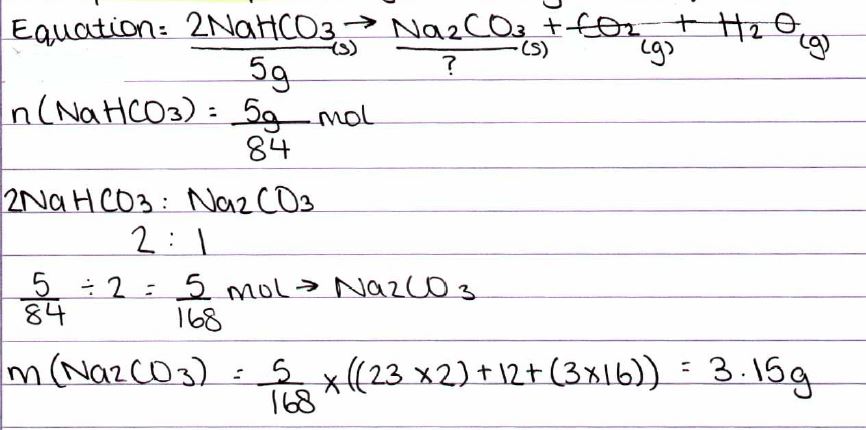 Equation: 2NaHCO3(s) → Na2CO3(s) + CO2(g) + H2O(g)
5g ?
n(NaHCO3) = 5g/84 mol
2NaHCO3 : Na2CO3
2 : 1
5/84 ÷ 2 = 5/168 mol → Na2CO3
m(Na2CO3) = 5/168 x ((23 x2)+12+(3x16)) = 3.15g